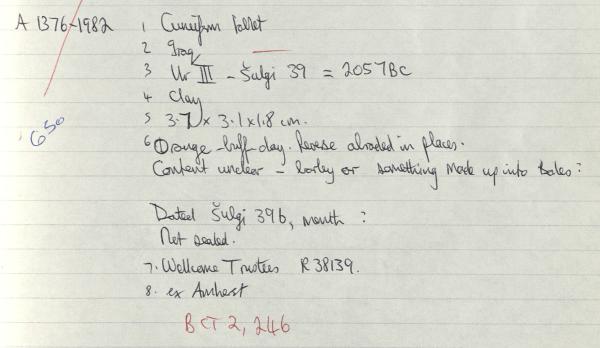 A 1376-1982 1 Cuneiform tablet
2 Iraq
3 Ur III - Šulgi 39 = 2057BC
4 Clay
5 3.7 x 3.1 x 1.8 cm.
6 Orange-buff clay. Reverse abraded in places.
Content unclear - barley or something made up into bales?
Dated Šulgi 39b, month ?
Not sealed.
7. Wellcome Trustees R 38139.
8. ex Amherst
BCT 2, 246